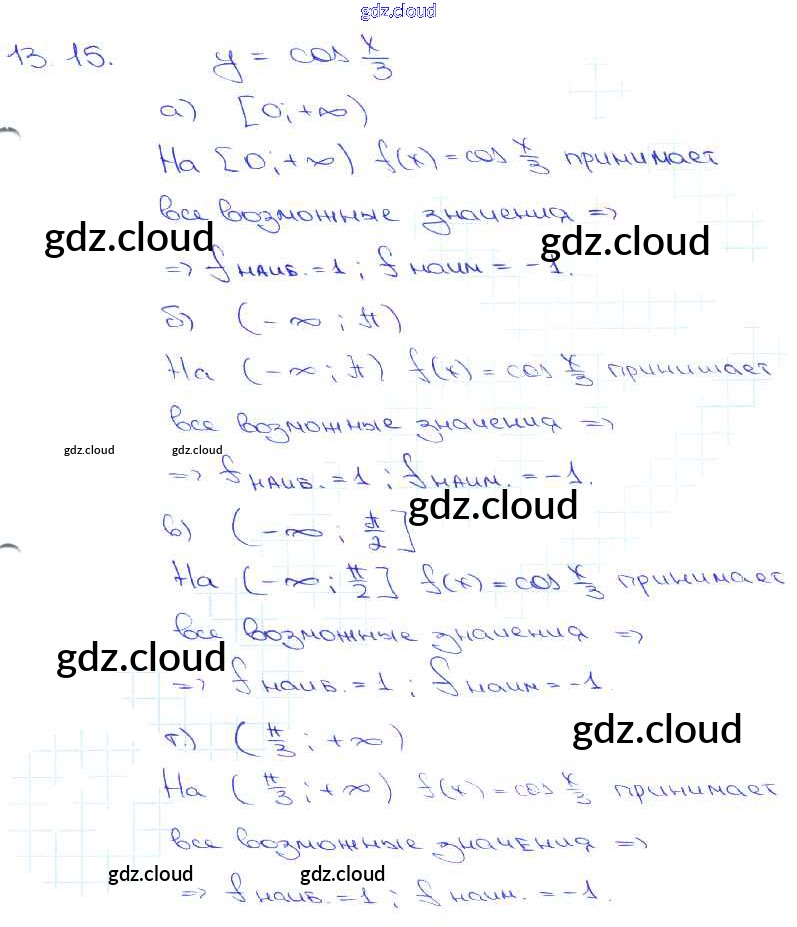 gdz.cloud
13.15. y = cos x/3
а) [0; +∞)
На [0; +∞) f(x) = cos x/3 принимает
все возможные значения =>
gdz.cloud gdz.cloud
=> f наиб. = 1; f наим = -1.
б) (-∞; π)
На (-∞; π) f(x) = cos x/3 принимает
все возможные значения =>
gdz.cloud gdz.cloud
=> f наиб. = 1; f наим. = -1.
gdz.cloud
в) (-∞; π/2]
На (-∞; π/2] f(x) = cos x/3 принимает
все возможные значения =>
gdz.cloud
=> f наиб. = 1; f наим = -1
gdz.cloud
г.) (π/3; +∞)
На (π/3; +∞) f(x) = cos x/3 принимает
все возможные значения =>
gdz.cloud gdz.cloud
=> f наиб. = 1; f наим. = -1.